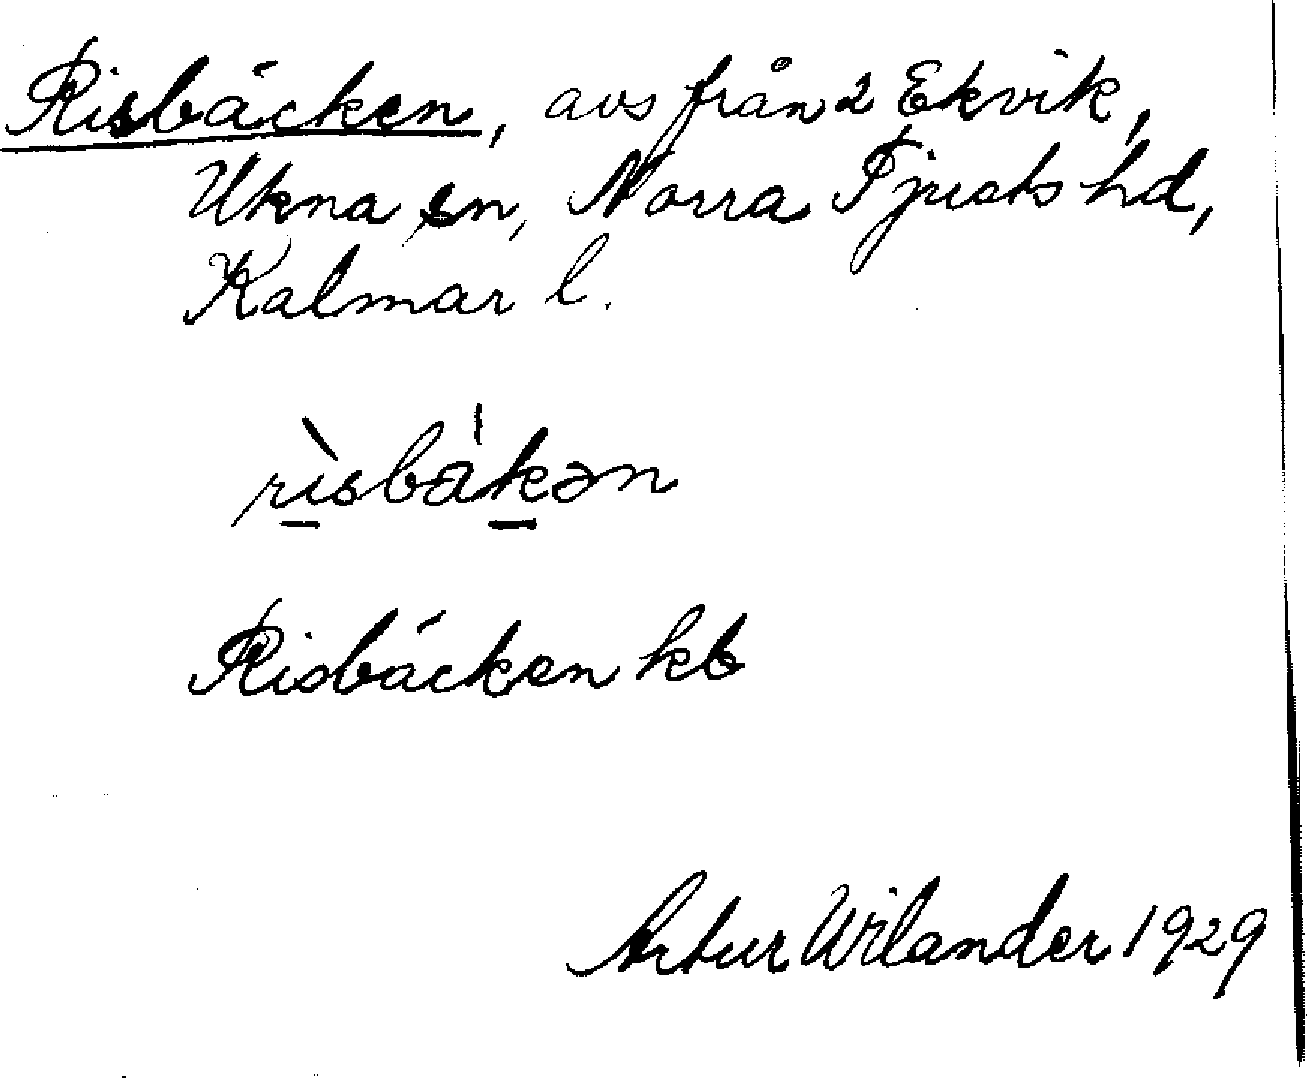 Risbäcken, avs från 2 Ekvik,
Ukna sn, Norra Tjusts hd,
Kalmar l.
rìsbäˈkən
Risbäcken kb
Artur Wilander 1929